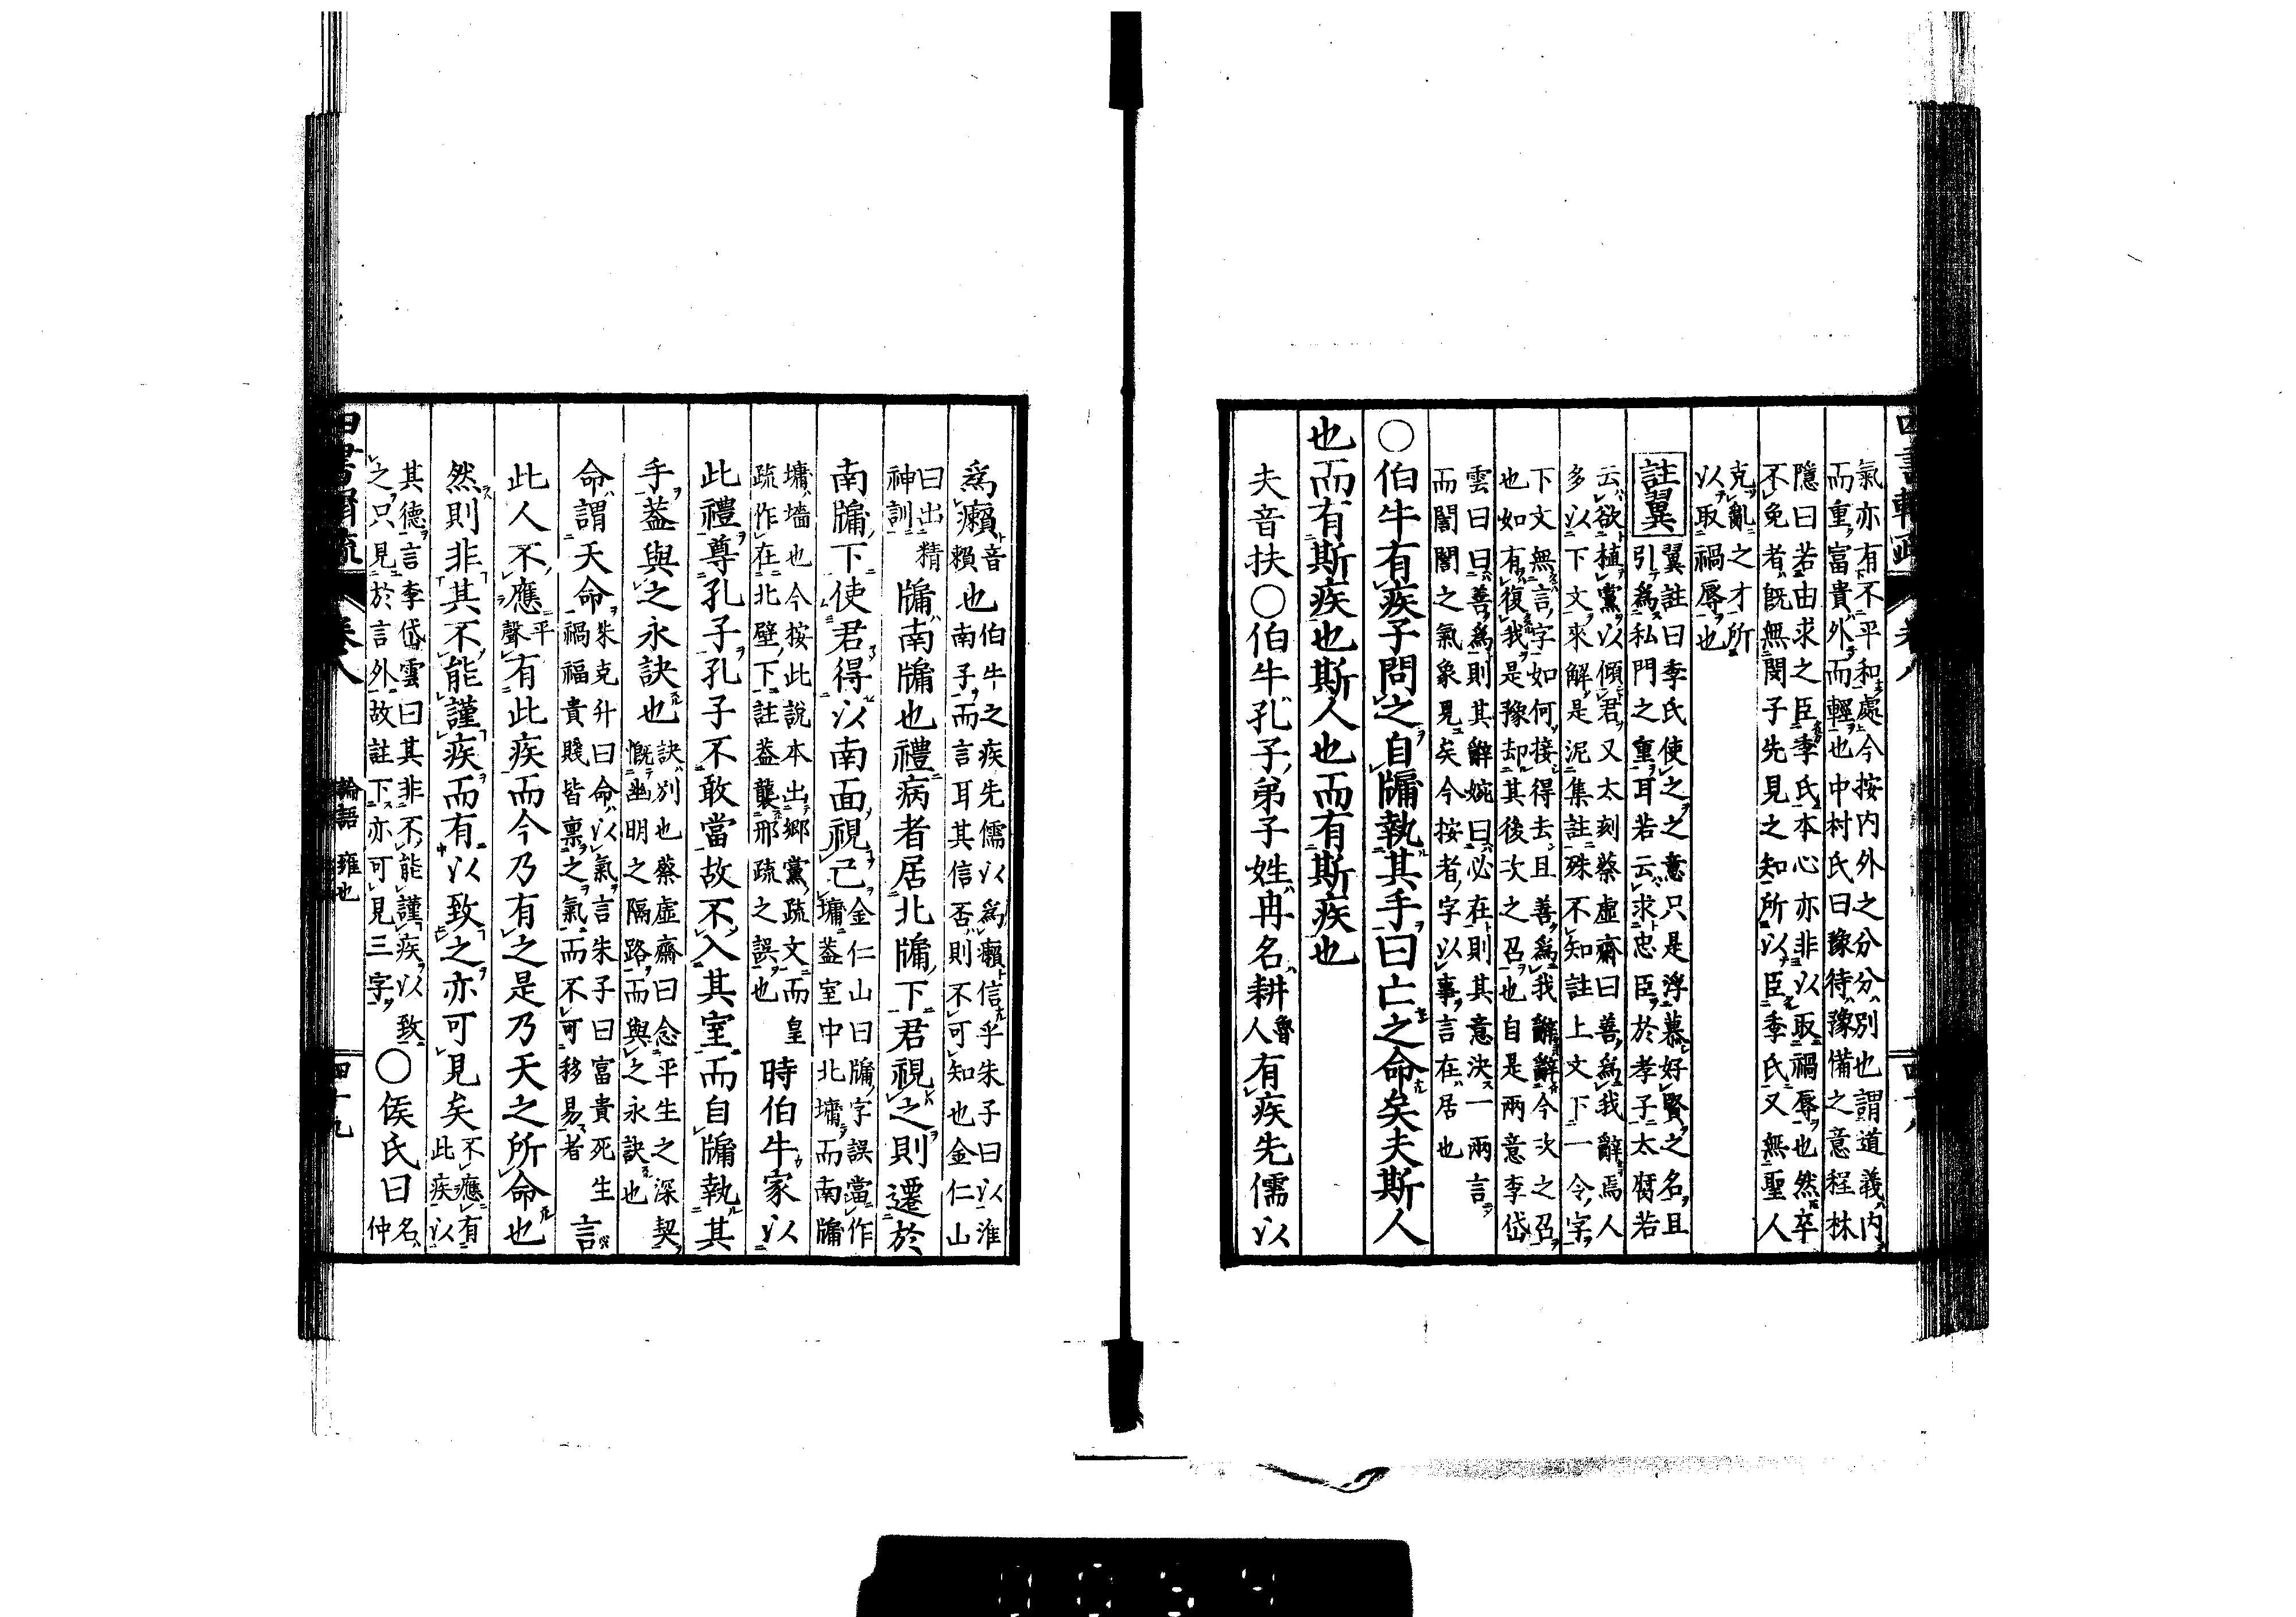 氣亦有不平和處今按内外之分分別也謂道義内
而重富貴外而輕也中村氏曰豫待豫備之意程林
隱曰若由求之臣季氏本心亦非以取禍辱也然卒
不免者既無閔子先見之知所以臣季氏又無聖人
克亂之才所
以取禍辱也
註翼
翼註曰季氏使之之意只是浮慕好賢之名且
引為私門之重耳若云求忠臣於孝子太腐若
云欲植黨以傾君又太刻蔡虛齋曰善為我辭焉人
多以下文來解是泥集註殊不知註上文下一令字
下文無言字如何接得去且善為我辭辭今次之召
也如有復我是豫却其後次之召也自是兩意李岱
雲曰曰善為則其辭婉曰必在則其意決一兩言
而誾誾之氣象見矣今按者字以事言在居也
○伯牛有疾子問之自牖執其手曰亡之命矣夫斯人
也而有斯疾也斯人也而有斯疾也
夫音扶○伯牛孔子弟子姓冉名耕魯人有疾先儒以
為癩音賴也伯牛之疾先儒以為癩信乎朱子曰以淮
南子而言耳其信否則不可知也金仁山
曰出精
神訓
牖南牖也禮病者居北牖下君視之則遷於
南牖下使君得以南面視己金仁山曰牖字誤當作
墉蓋室中北墉而南牖
墉墻也今按此說本出鄉黨疏文而皇
疏作在北壁下註蓋襲邢疏之誤也
時伯牛家以
此禮尊孔子孔子不敢當故不入其室而自牖執其
手蓋與之永訣也訣別也蔡虛齋曰念平生之深契
慨幽明之隔路而與之永訣也
命謂天命朱克升曰命以氣言朱子曰富貴死生
禍福貴賤皆稟之氣而不可移易者
言
此人不應平聲有此疾而今乃有之是乃天之所命也
然則非其不能謹疾而有以致之亦可見矣不應有
此疾以
其德言李岱雲曰其非不能謹疾以致
之只見於言外故註下亦可見三字
○侯氏曰名仲
論語 雍也
四十九